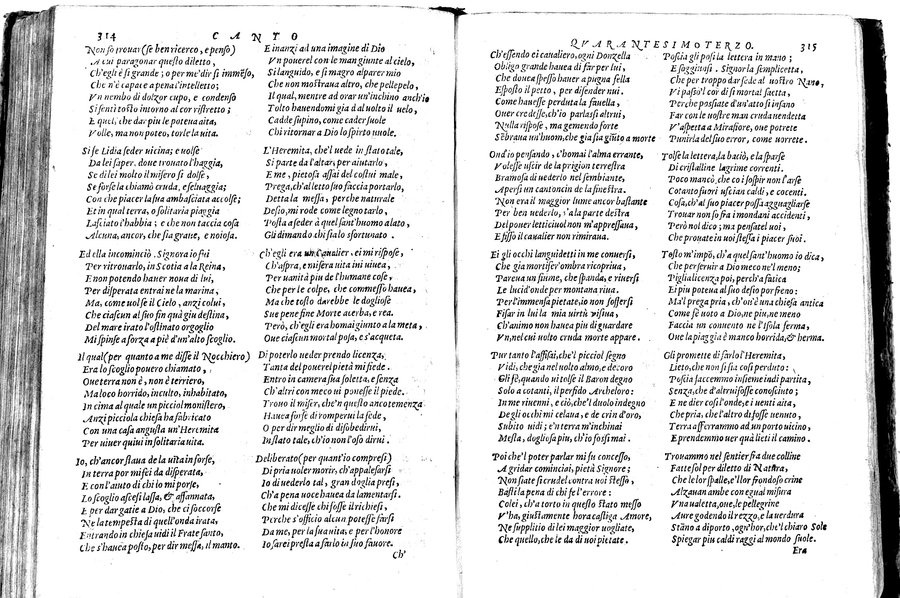 314 CANTO
Non so trouar (se ben ricerco, e penso)
A cui paragonar questo diletto,
Ch'egli è si grande; o per me' dir si immẽso,
Che n'è capace a pena l'intelletto;
Vn nembo di dolzor cupo, e condenso
Si sentì tosto intorno al cor ristretto;
E quel, che dar piu le poteua aita,
Volle, ma non poteo, torle la uita.
Si fe Lidia seder uicina; e uolle
Da lei saper, doue trouato l'haggia,
Se di lei molto il misero si dolse,
Se forse la chiamò cruda, e seluaggia;
Con che piacer la sua ambasciata accolse;
Et in qual terra, o solitaria piaggia
Lasciato l'habbia; e che non taccia cosa
Alcuna, ancor, che sia graue, e noiosa.
Ed ella incominciò. Signora io fui
Per ritrouarlo, in Scotia a la Reina,
E non potendo hauer noua di lui,
Per disperata entrai ne la marina,
Ma, come uolse il Cielo, anzi colui,
Che ciascun al suo fin quà giu destina,
Del mare irato l'ostinato orgoglio
Mi spinse a forza a piè d'un'alto scoglio.
Il qual (per quanto a me disse il Nocchiero)
Era lo scoglio pouero chiamato,
Oue terra non è, non è terriero,
Ma loco horrido, inculto, inhabitato,
In cima al quale un picciol monistero,
Anzi picciola chiesa ha fabricato
Con una casa angusta un'Heremita
Per uiuer quiui in solitaria uita.
Io, ch'ancor staua de la uita in forse,
In terra por mi fei da disperata,
E con l'aiuto di chi lo mi porse,
Lo scoglio ascesi lassa, & affannata,
E per dar gatie a Dio, che ci soccorse
Ne la tempesta di quell'onda irata,
Entrando in chiesa uidi il Frate santo,
Che s'hauea posto, per dir messa, il manto.
E inanzi ad una imagine di Dio
Vn pouerel con le man giunte al cielo,
Si languido, e si magro al parer mio
Che non mostraua altro, che pelle, e pelo,
Il qual, mentre ad orar un'inchino anchio
Tolto hauendomi gia dal uolto il uelo,
Cadde supino, come cader suole
Chi ritornar a Dio lo spirto uuole.
L'Heremita, che'l uede in stato tale,
Si parte da l'altar, per aiutarlo,
E me, pietosa assai del costui male,
Prega, ch'al letto suo faccia portarlo,
Detta la messa, perche naturale
Desio, mi rode come legno tarlo,
Posta a seder à quel sant'huomo a lato,
Gli dimando chi sia lo sfortunato.
Ch'egli era un Caualier, ei mi rispose,
Ch'aspra, e misera uita iui uiuea,
Per uanità piu de l'humane cose,
Che per le colpe, che commesso hauea,
Ma che tosto darebbe le dogliose
Sue pene fine Morte acerba, e rea.
Però, ch'egli era homai giunto a la meta,
Oue ciascun mortal posa, e s'acqueta.
Di poterlo ueder prendo licenza,
Tanta del pouerel pietà mi fiede.
Entro in camera sua soletta, e senza
Ch'altri con meco ui ponesse il piede.
Trouo il miser, che'n quello ancotemenza
Hauea forse di romperui la fede,
O per dir meglio di disobedirui,
In stato tale, ch'io non l'oso dirui.
Deliberato (per quant'io compresi)
Di pria uoler morir, ch'appalesarsi
Io di uederlo tal, gran doglia presi,
Ch'a pena uoce hauea da lamentarsi.
Che mi dicesse chi fosse il richiesi,
Perche s'officio alcun potesse farsi
Da me, per la sua uita, e per l'honore
Io sarei presta a farlo in suo fauore.
Ch'
QVARANTESIMOTERZO. 315
Ch'essendo ei caualiero, ogni Donzella
Obligo grande hauea di far per lui,
Che douea spesso hauer a pugna fella
Esposto il petto, per difender nui.
Come hauesse perduta la fauella,
Ouer credesse, ch'io parlassi altrui,
Nulla rispose, ma gemendo forte
Sẽbraua un'huom, che gia sia giũto a morte
Ond'io pensando, c'homai l'alma errante,
Volesse uscir de la prigion terrestra
Bramosa di uederlo nel sembiante,
Apersi un cantoncin de la finestra.
Non era il maggior lume ancor bastante
Per ben uederlo, s'a la parte destra
Del pouer letticiuol non m'appressaua,
E fisso il caualier non rimiraua.
Ei gli occhi languidetti in me conuersi,
Che gia mortifer'ombra ricopriua,
Parea un fiume, che spanda, e riuersi
Le lucid'onde per montana riua.
Per l'immensa pietate, io non soffersi
Fisar in lui la mia uirtù uisiua,
Ch'animo non hauea piu di guardare
Vn, nel cui uolto cruda morte appare.
Pur tanto l'affisai, che'l picciol segno
Vidi, che gia nel uolto almo, e decoro
Gli fè, quando ui tolse il Baron degno
Solo a cotanti, il perfido Archeloro:
In me riuenni, e ciò, che'l duolo indegno
Degli occhi mi celaua, e de crin d'oro,
Subito uidi; e'n terra m'inchinai
Mesta, dogliosa piu, ch'io fossi mai.
Poi che'l poter parlar mi fu concesso,
A gridar cominciai, pietà Signore;
Non siate si crudel contra uoi stesso,
Basti la pena di chi fe l'errore:
Colei, ch'a torto in questo stato messo
V'ha, giustamente hora castiga Amore,
Ne supplitio di lei maggior uogliate,
Che quello, che le da di uoi pietate.
Poscia gli posi la lettera in mano;
E soggiunsi. Signor la semplicetta,
Che per troppo dar fede al uostro Nano,
Vi passò'l cor di si mortal saetta,
Perche possiate d'un'atto si insano
Far con le uostre man cruda uendetta
V'aspetta a Mirafiore, oue potrete
Punirla del suo error, come uorrete.
Tolse la lettera, la baciò, e la sparse
Di cristalline lagrime correnti.
Poco mancò, che co i sospir non l'arse
Cotanto fuori uscian caldi, e cocenti.
Cosa, ch'al suo piacer possa agguagliarse
Trouar non so fra i mondani accidenti,
Però nol dico; ma pensatel uoi,
Che prouate in uoi stessa i piacer suoi.
Tosto m'impò, ch'a quel sant'huomo io dica,
Che per seruir a Dio meco ne'l meno;
Piglia licenza poi, perch'a fatica
Ei piu poteua al suo desio por freno:
Ma'l prega pria, ch'on'è una chiesa antica
Come fè uoto a Dio, ne piu, ne meno
Faccia un conuento ne l'Isola ferma,
Oue la piaggia è manco horrida, & herma.
Gli promette di farlo l'Heremita,
Lieto, che non si sia così perduto:
Poscia facemmo insieme indi partita,
Senza, che d'altrui fosse conosciuto;
E ne dier cosi l'onde, e i uenti aita,
Che pria, che l'altro dì fosse uenuto,
Terra afferrammo ad un porto uicino,
E prendemmo uer quà lieti il camino.
Trouammo nel sentier fra due colline
Fatte sol per diletto di Natura,
Che le lor spalle, e'l lor frondoso crine
Alzauan ambe con egual misura
Vna ualetta, oue, le pellegrine
Aure godendo il rezzo, e la uerdura
Stãno a diporto, ogn'hor, che'l chiaro Sole
Spiegar piu caldi raggi al mondo suole.
Era